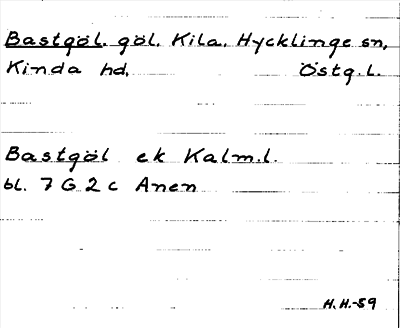 Bastgöl. göl. Kila. Hycklinge sn,
Kinda hd, Östg.L.
Bastgöl ek Kalm.l.
bl. 7 G 2 c Anen
H.H.-59